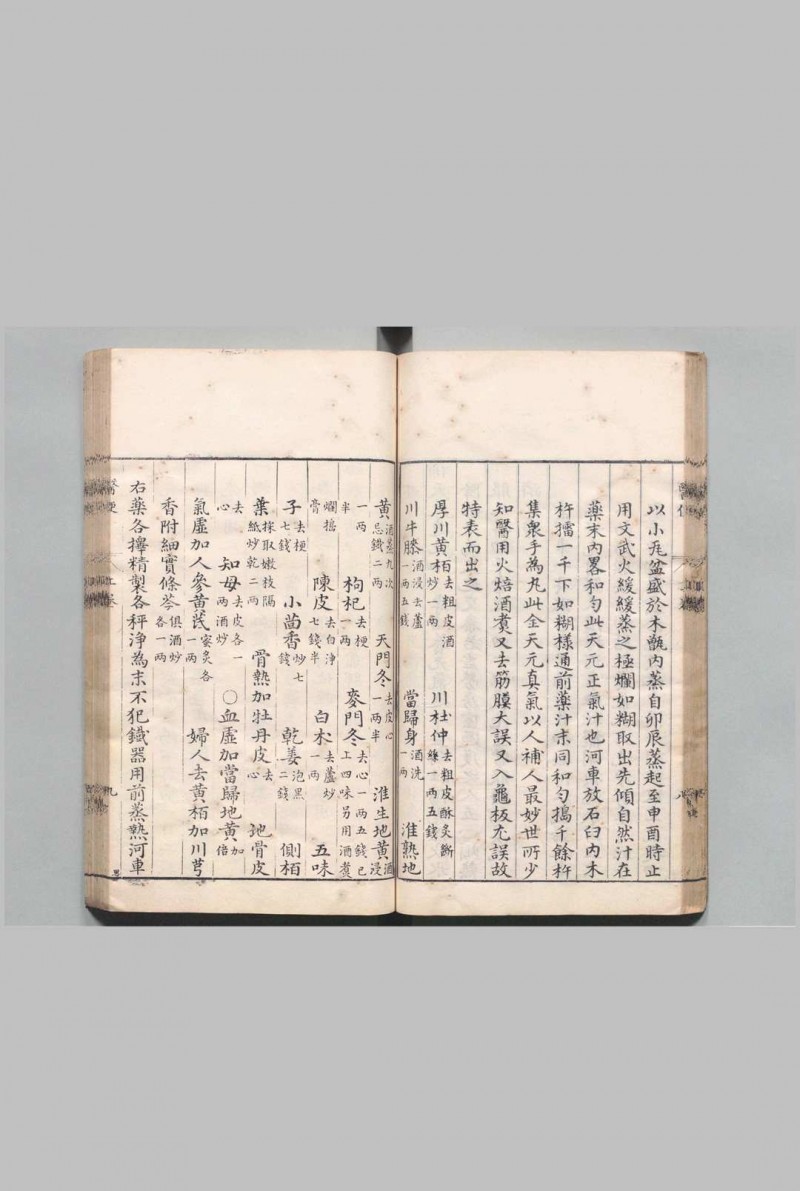 以小瓦盆盛於木甑內蒸自卯辰蒸起至申酉時止
用文武火緩緩蒸之極爛如糊取出先傾自然汁在
藥末內畧和勻此天元正氣汁也河車放石臼內木
杵擂一千下如糊樣通前藥汁末同和勻搗千餘杵
集衆手為丸此全天元真氣以人補人最妙世所少
知醫用火焙酒煑又去筋膜大誤又入龜板尤誤故
特表而出之
厚川黄栢去粗皮酒炒一兩 川杜仲去粗皮酥炙斷絲一兩五錢
川牛膝酒浸去蘆一兩五錢 當歸身酒洗一兩 淮熟地
黄酒蒸九次忌鐵二兩 天門冬去皮心一兩半 淮生地黄酒浸
一兩半 枸杞去梗一兩 麥門冬去心一兩五錢已上四味另用酒煑
爛搗膏 陳皮去白净七錢半 白术去蘆炒一兩 五味
子去梗七錢 小茴香炒七錢 乾姜泡黑二錢 側栢
葉採取嫩枝隔紙炒乾二兩 骨熱加牡丹皮去心 地骨皮
去心 知母去皮各一兩酒炒 〇血虛加當歸地黄加倍
氣虛加人參黄芪蜜炙各一兩 婦人去黄栢加川芎
香附細實條芩俱酒炒各一兩
右藥各擇精製各秤淨為末不犯鐵器用前蒸熟河車
上卷
九
八